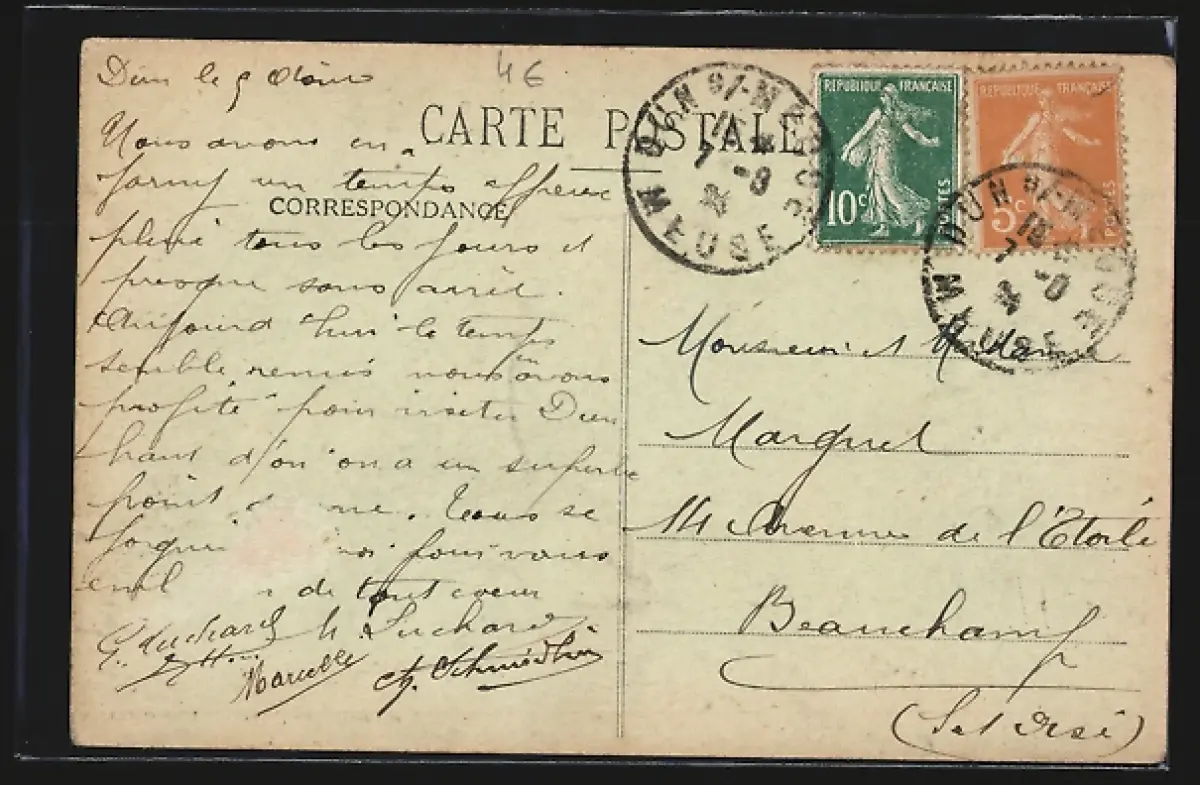 Dun le
46
CARTE POSTALE
CORRESPONDANCE
Nous avons en
Jarny un temps affreux
pluie tous les jours et
presque sans arrêt.
Aujourd'hui le temps
semble remis nous en avons
profité pour visiter Dun
haut d'où on a un superbe
point ne. Tous se
pour vous
de tout cœur
G. Suchard M. Suchard
Marcelle
RÉPUBLIQUE FRANÇAISE
10c
POSTES
RÉPUBLIQUE FRANÇAISE
5c
POSTES
DUN S/-MEUSE
MEUSE
DUN S/-MEUSE
MEUSE
Monsieur et Madame
Marquet
14 Avenue de l'Etoile
Beauchamp
(Set Oise)